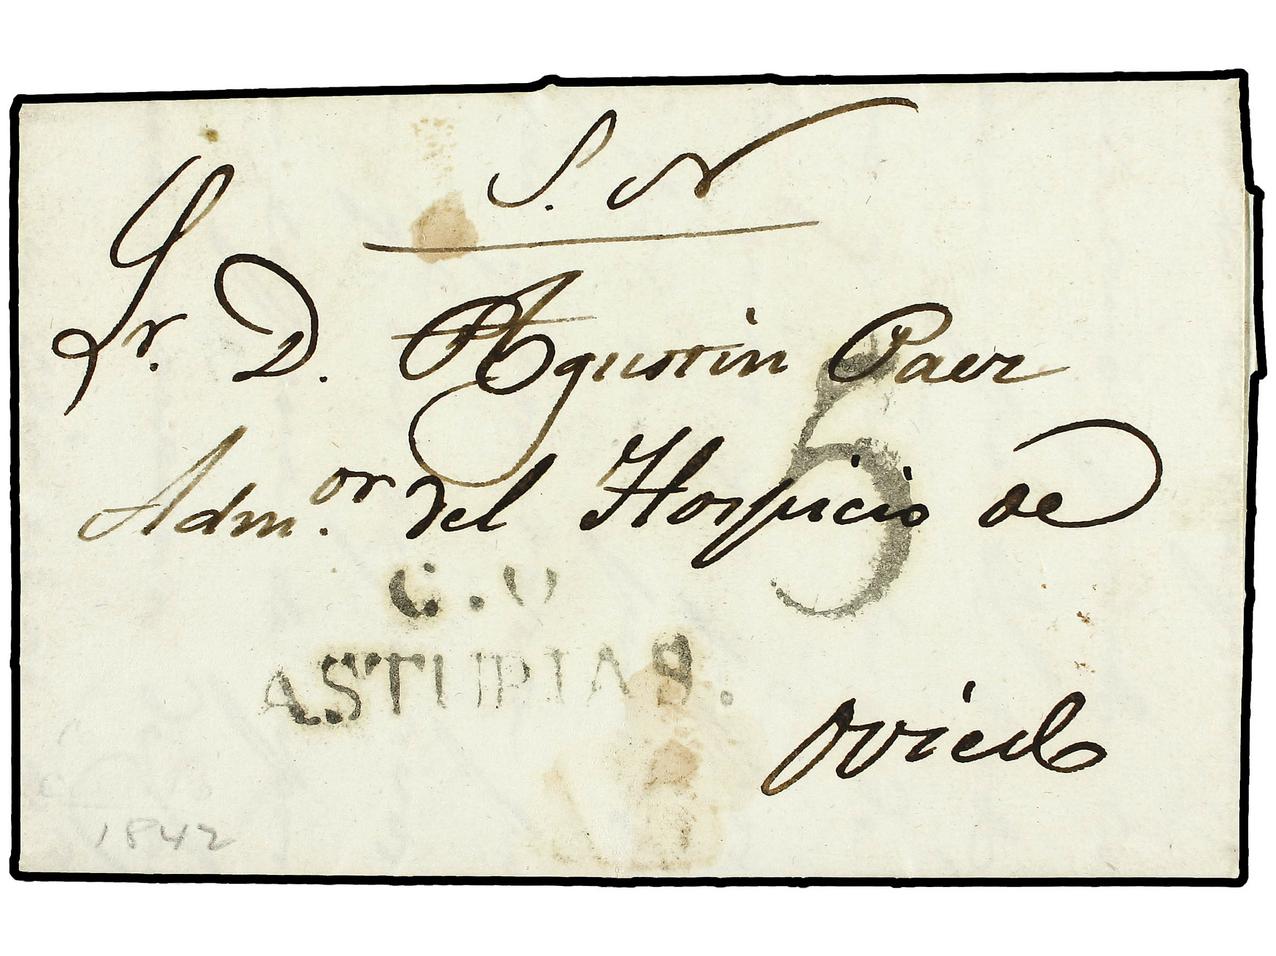 S. N
Sr. D. Agustin Paez
Adm.or del Hospicio de
5
C.O
ASTURIAS.
Oviedo
1842